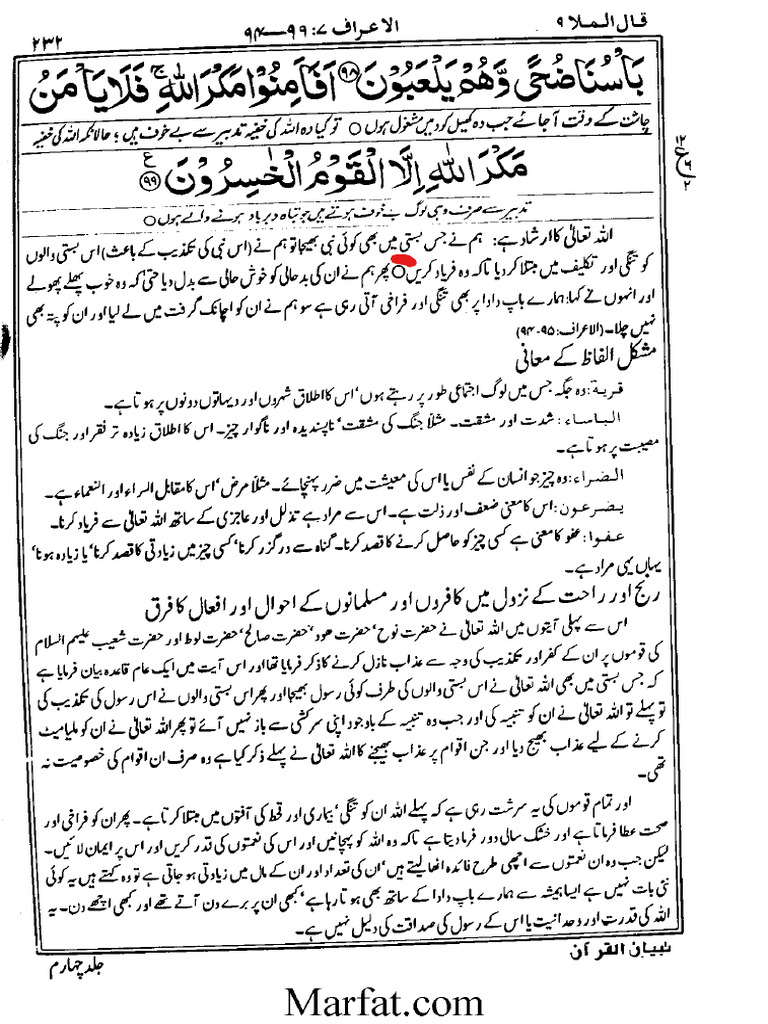 قال الملا ۹ الاعراف ۷: ۹۹—۹۴ ۲۳۲
بَاْسُنَا ضُحًى وَّهُمْ يَلْعَبُوْنَ ﴿۹۸﴾ اَفَاَمِنُوْا مَكْرَ اللّٰهِ ۚ فَلَا يَاْمَنُ
چاشت کے وقت آجائے جب وہ کھیل کود میں مشغول ہوں ○ تو کیا وہ اللہ کی خفیہ تدبیر سے بے خوف ہیں؛ حالانکہ اللہ کی خفیہ
مَكْرَ اللّٰهِ اِلَّا الْقَوْمُ الْخٰسِرُوْنَ ﴿۹۹﴾ ع
تدبیر سے صرف وہی لوگ بے خوف ہوتے ہیں جو تباہ و برباد ہونے والے ہوں ○
اللہ تعالیٰ کا ارشاد ہے: ہم نے جس بستی میں بھی کوئی نبی بھیجا تو ہم نے (اس نبی کی تکذیب کے باعث) اس بستی والوں
کو تنگی اور تکلیف میں مبتلا کر دیا تاکہ وہ فریاد کریں ○ پھر ہم نے ان کی بدحالی کو خوش حالی سے بدل دیا حتیٰ کہ وہ خوب پھلے پھولے
اور انہوں نے کہا: ہمارے باپ دادا پر بھی تنگی اور فراخی آتی رہی ہے سو ہم نے ان کو اچانک گرفت میں لے لیا اور ان کو پتہ بھی
نہیں چلا۔ (الاعراف: ۹۵-۹۴)
مشکل الفاظ کے معانی
قریة: وہ جگہ جس میں لوگ اجتماعی طور پر رہتے ہوں' اس کا اطلاق شہروں اور دیہاتوں دونوں پر ہوتا ہے۔
الباساء: شدت اور مشقت۔ مثلاً جنگ کی مشقت' ناپسندیدہ اور ناگوار چیز۔ اس کا اطلاق زیادہ تر فقر اور جنگ کی
مصیبت پر ہوتا ہے۔
الضراء: وہ چیز جو انسان کے نفس یا اس کی معیشت میں ضرر پہنچائے۔ مثلاً مرض' اس کا مقابل السراء اور النعماء ہے۔
یضرعون: اس کا معنی ضعف اور ذلت ہے۔ اس سے مراد ہے تذلل اور عاجزی کے ساتھ اللہ تعالیٰ سے فریاد کرنا۔
عفوا: عفو کا معنی ہے کسی چیز کو حاصل کرنے کا قصد کرنا۔ گناہ سے درگزر کرنا' کسی چیز میں زیادتی کا قصد کرنا' یا زیادہ ہونا'
یہاں یہی مراد ہے۔
رنج اور راحت کے نزول میں کافروں اور مسلمانوں کے احوال اور افعال کا فرق
اس سے پہلی آیتوں میں اللہ تعالیٰ نے حضرت نوح' حضرت ھود' حضرت صالح' حضرت لوط اور حضرت شعیب علیہم السلام
کی قوموں پر ان کے کفر اور تکذیب کی وجہ سے عذاب نازل کرنے کا ذکر فرمایا تھا اور اس آیت میں ایک عام قاعدہ بیان فرمایا ہے
کہ جس بستی میں بھی اللہ تعالیٰ نے اس بستی والوں کی طرف کوئی رسول بھیجا اور پھر اس بستی والوں نے اس رسول کی تکذیب کی
تو پہلے تو اللہ تعالیٰ نے ان کو تنبیہ کی اور جب وہ تنبیہ کے باوجود اپنی سرکشی سے باز نہیں آئے تو پھر اللہ تعالیٰ نے ان کو ملیامیٹ
کرنے کے لیے عذاب بھیج دیا اور جن اقوام پر عذاب بھیجنے کا اللہ تعالیٰ نے پہلے ذکر کیا ہے وہ صرف ان اقوام کی خصوصیت نہ
تھی۔
اور تمام قوموں کی یہ سرشت رہی ہے کہ پہلے اللہ ان کو تنگی' بیماری اور قحط کی آفتوں میں مبتلا کرتا ہے۔ پھر ان کو فراخی اور
صحت عطا فرماتا ہے اور خشک سالی دور فرما دیتا ہے تاکہ وہ اللہ کو پہچانیں اور اس کی نعمتوں کی قدر کریں اور اس پر ایمان لائیں۔
لیکن جب وہ ان نعمتوں سے اچھی طرح فائدہ اٹھا لیتے ہیں' ان کی تعداد اور ان کے مال میں زیادتی ہو جاتی ہے تو وہ کہتے ہیں یہ کوئی
نئی بات نہیں ہے ایسا ہمیشہ سے ہمارے باپ دادا کے ساتھ بھی ہوتا رہا ہے' کبھی ان پر برے دن آتے تھے اور کبھی اچھے دن۔ یہ
اللہ کی قدرت اور وحدانیت یا اس کے رسول کی صداقت کی دلیل نہیں ہے۔
تبیان القرآن
جلد چہارم
Marfat.com